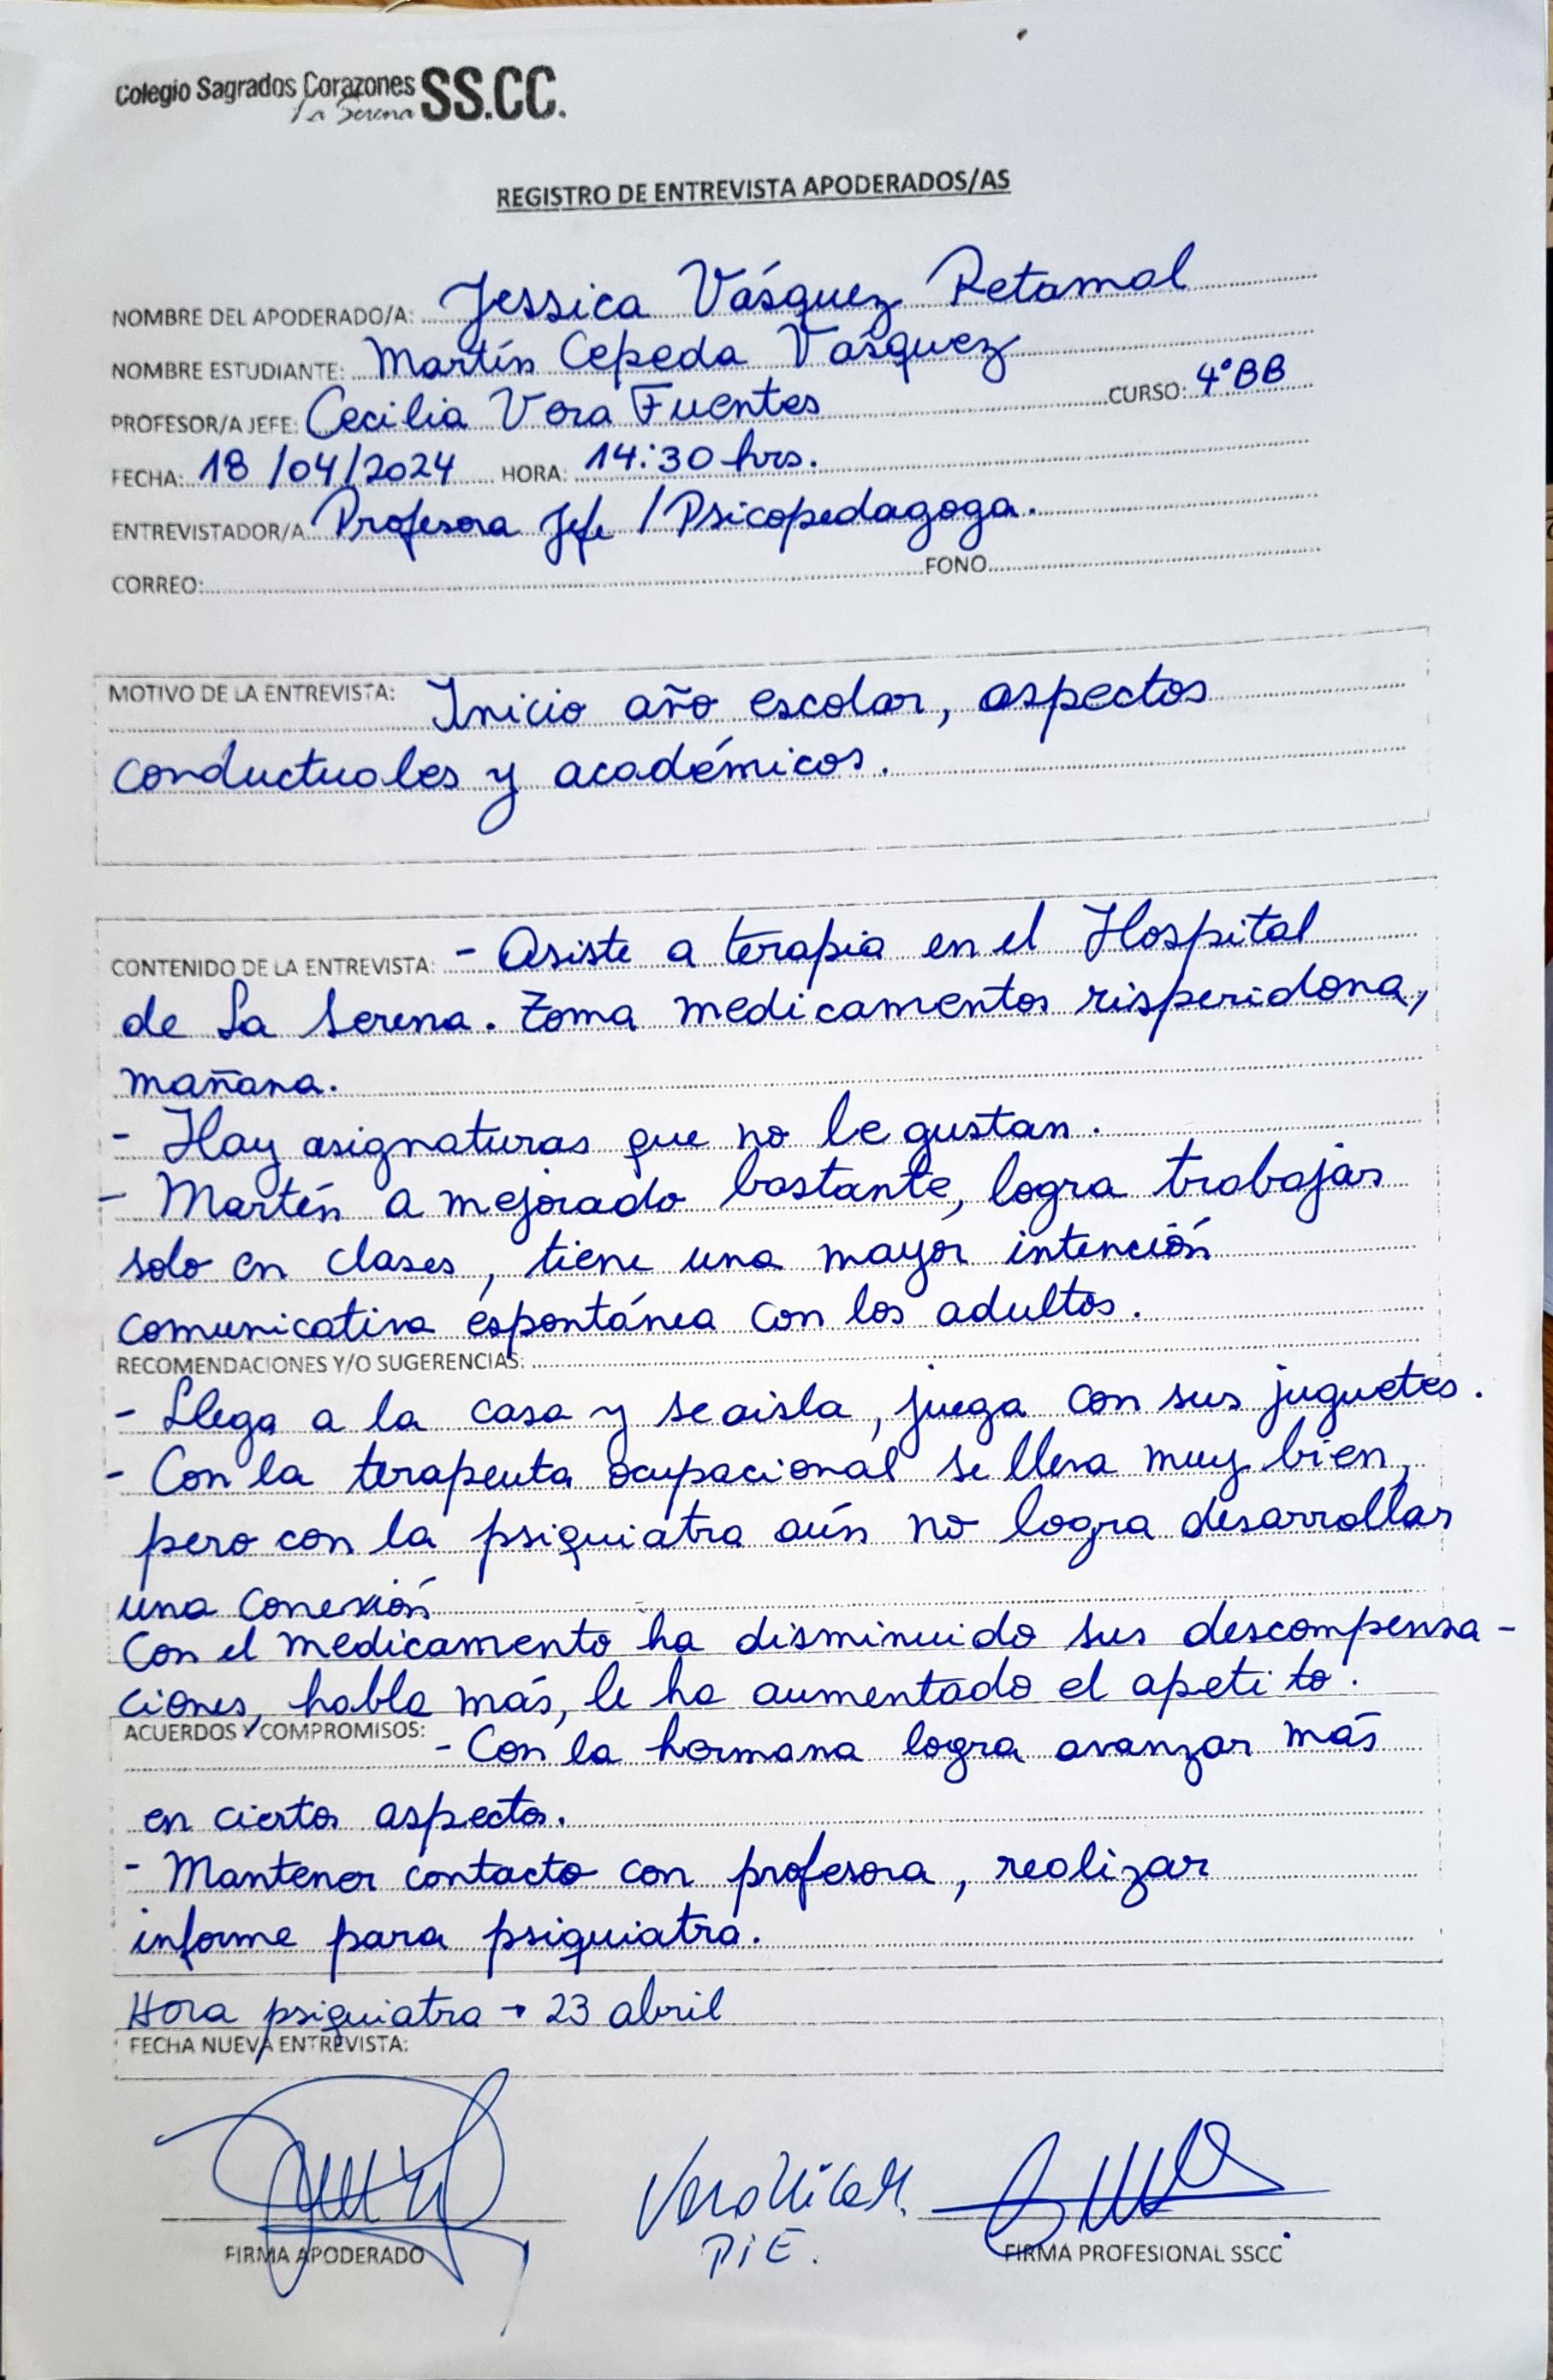 Colegio Sagrados Corazones SS.CC.
La Serena
REGISTRO DE ENTREVISTA APODERADOS/AS
NOMBRE DEL APODERADO/A: Jessica Vásquez Retamal
NOMBRE ESTUDIANTE: Martín Cepeda Vásquez
PROFESOR/A JEFE: Cecilia Vera Fuentes CURSO: 4°BB
FECHA: 18/04/2024 HORA: 14:30 hrs.
ENTREVISTADOR/A Profesora Jefe / Psicopedagoga.
CORREO: FONO
MOTIVO DE LA ENTREVISTA: Inicio año escolar, aspectos
conductuales y académicos.
CONTENIDO DE LA ENTREVISTA: - Asiste a terapia en el Hospital
de La Serena. Toma medicamentos risperidona,
mañana.
- Hay asignaturas que no le gustan.
- Martín a mejorado bastante, logra trabajar
solo en clases, tiene una mayor intención
comunicativa espontánea con los adultos.
RECOMENDACIONES Y/O SUGERENCIAS:
- Llega a la casa y se aisla, juega con sus juguetes.
- Con la terapeuta ocupacional se lleva muy bien,
pero con la psiquiatra aún no logra desarrollar
una conexión
Con el medicamento ha disminuido sus descompensa-
ciones, habla más, le ha aumentado el apetito.
ACUERDOS Y COMPROMISOS: - Con la hermana logra avanzar más
en ciertos aspectos.
- Mantener contacto con profesora, realizar
informe para psiquiatra.
Hora psiquiatra → 23 abril
FECHA NUEVA ENTREVISTA:
PIE.
FIRMA APODERADO FIRMA PROFESIONAL SSCC